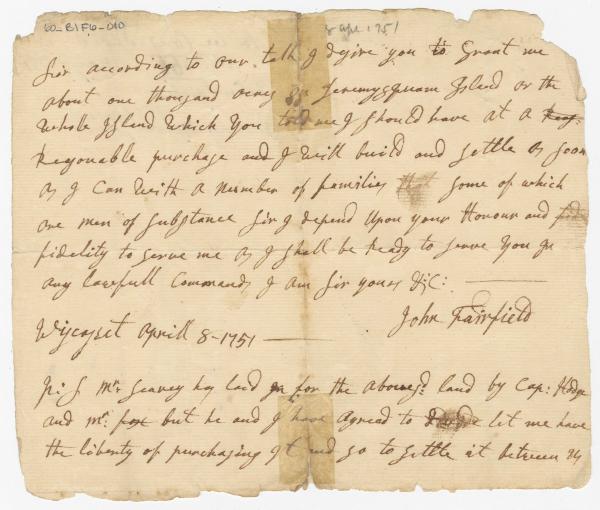 60-B1F6-010
8 Apr. 1751
Sir according to our talk I desire you to Grant me
about one thousand acres on Jeremysquam Island or the
Whole Island Which You told me I should have at a Reas:
Reasonable purchase and I will build and settle as soon
as I Can With a number of families that some of which
are men of substance Sir I depend Upon your Honour and fide
fidelity to serve me as I shall be Ready to serve You in
any lawfull Commands I am Sir yours &C:
John Fairfield
Wiscasset Aprill 8-1751
P:S Mr Seavey has laid in for the aboves.d land by Cap: Hodge
and mr: fox but he and I have agreed to let me have
the liberty of purchasing It and so to settle it between us